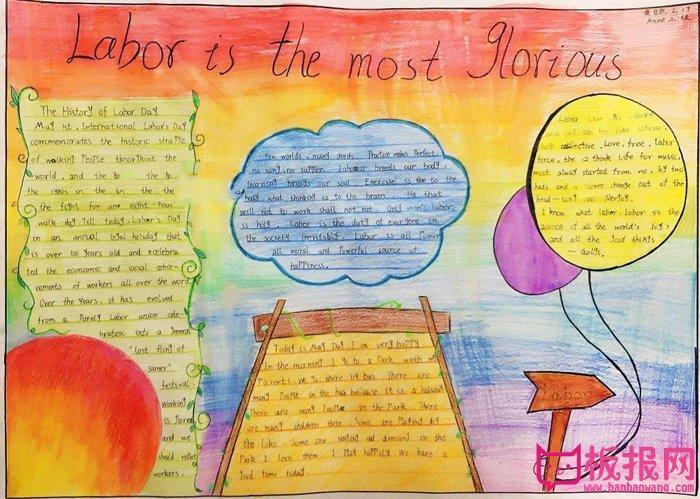 Labor is the most Glorious
Anne
The History of Labor Day
May 1st, International Labor's Day
commemorates the historic
of walking People throughout the
world, and the to the to
the 1880s or the in the the
the fight for an eight-hour
walk day. Till today, Labor's Day
is an annual holiday that
is over 100 years old and celebra
ted the economic and social achie-
vements of workers all over the word
Over the years, it has evolved
from a Purely Labor union cele
bration into a general
"last fling of
sumer"
festival.
working
is
and we
should
workers.
Few worlds, many deeds. Practice makes Perfect.
no song, no supper. Labour breeds our body
learning breeds our soul. Exercise is the to the
body what thinking is to the brain. He that
will not to work shall not eat. Only man's labor
is holy. Labor is the duty of everyone in
the society inevitably. Labor is all Power,
all moral and Powerful source of
happiness.
Today is May Day. I am very happy.
In the morning I go to a Park with my
Parents. We go there by bus. There are
many People in the bus because it is a holiday
There are many People in the Park. There
are many children there. Some are Playing by
the lake. Some are singing and dancing in the
Park. I join them. I Play happily. We have a
good time today.
Labor, love
Love, free, labor
force, the 12 think life for music,
most always started from no, by two
hads and a lever change out of the
head
I know what labor: labor is the
source of all the world's joy,
and all the good things
Labor
板报网
www.banbaowang.com